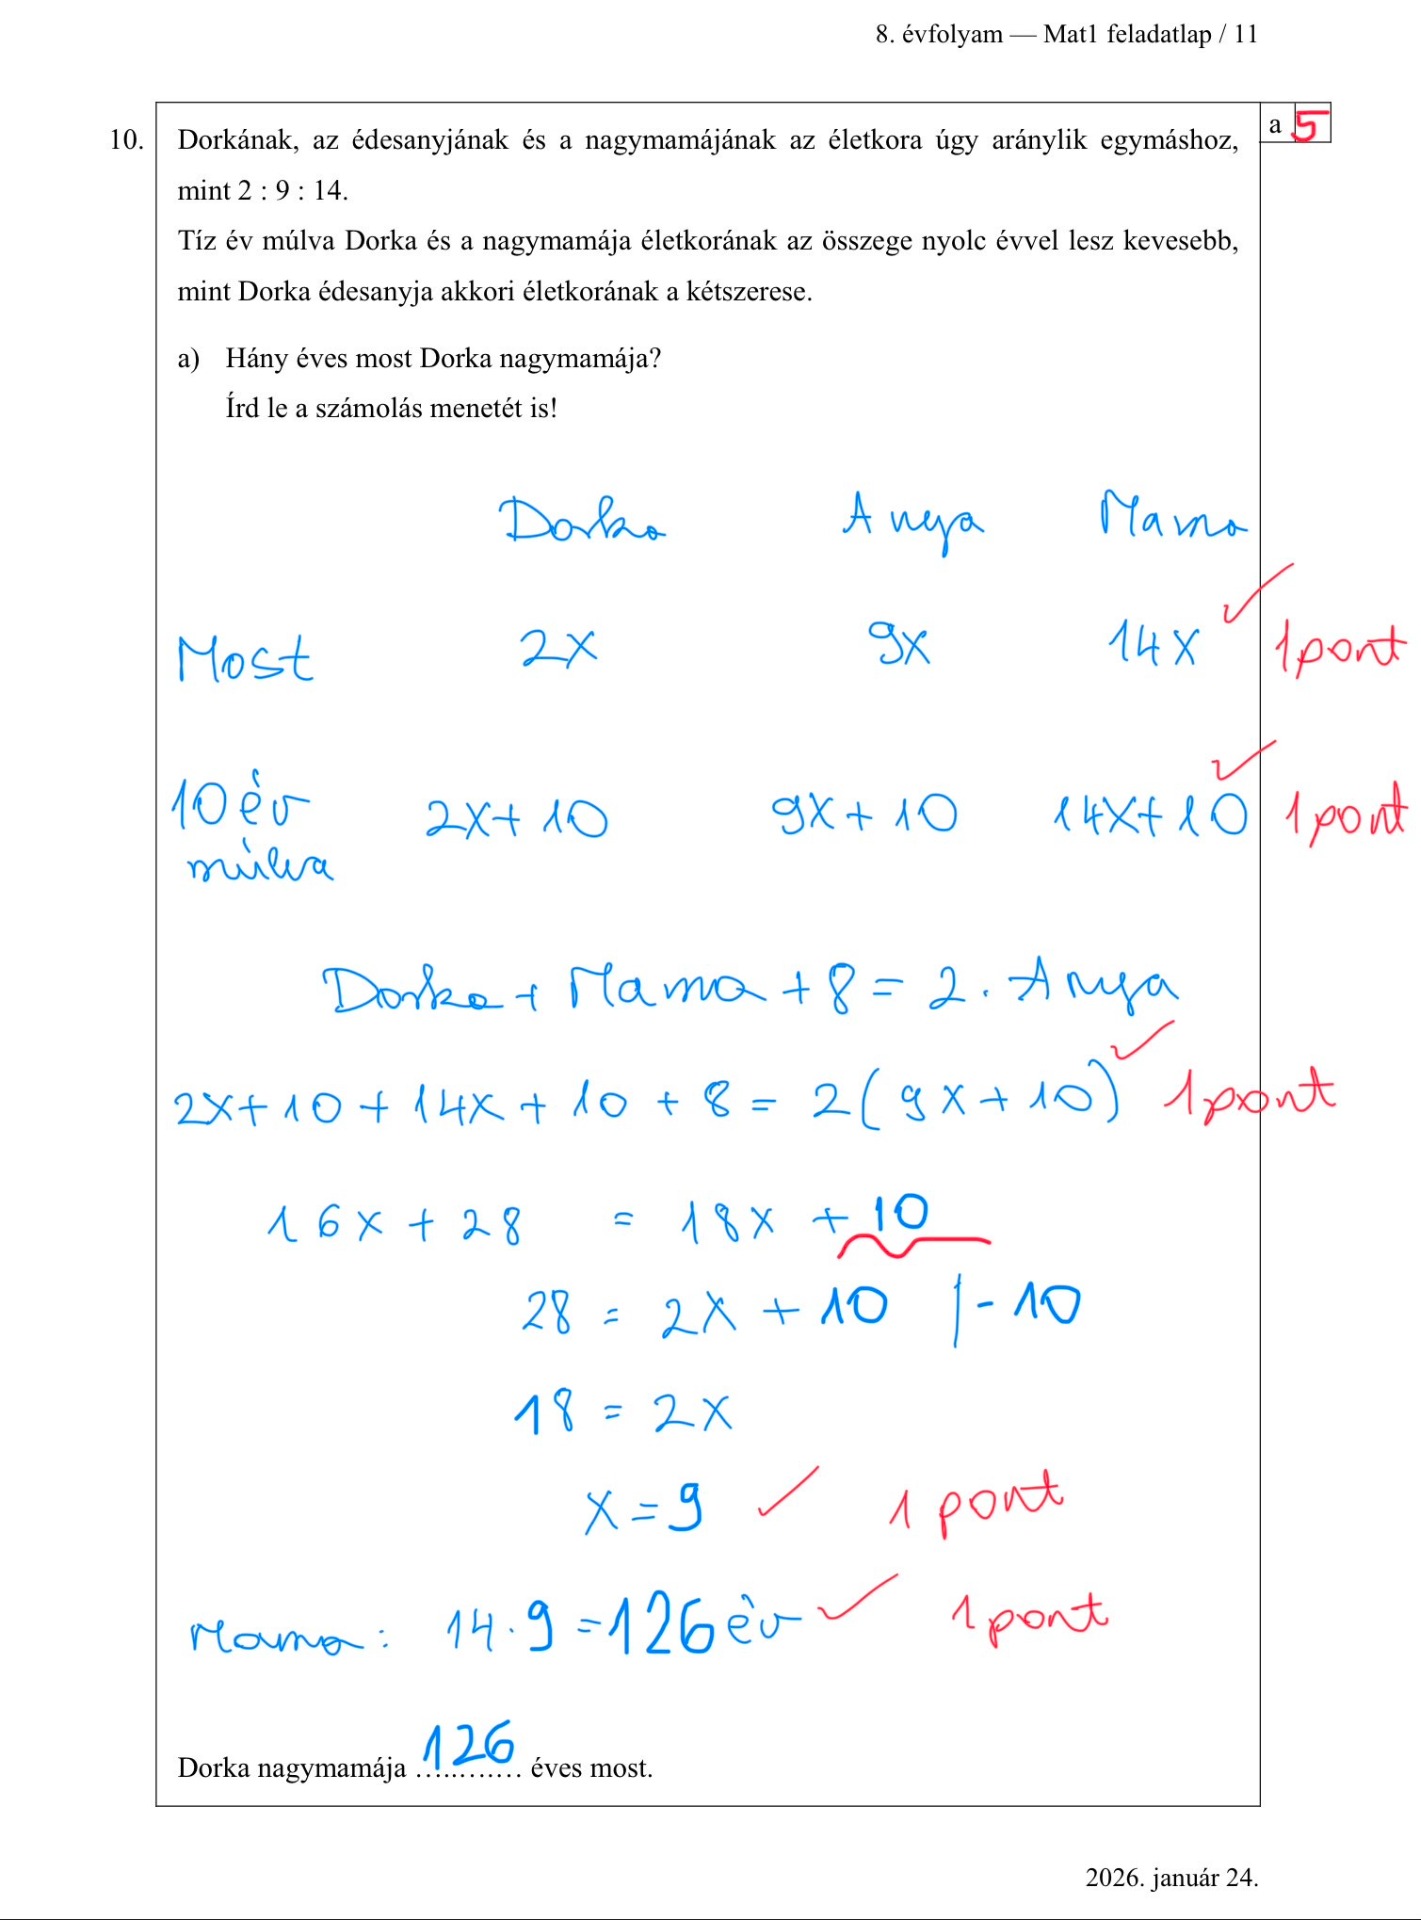 8. évfolyam — Mat1 feladatlap / 11
a 5
10. Dorkának, az édesanyjának és a nagymamájának az életkora úgy aránylik egymáshoz,
mint 2 : 9 : 14.
Tíz év múlva Dorka és a nagymamája életkorának az összege nyolc évvel lesz kevesebb,
mint Dorka édesanyja akkori életkorának a kétszerese.
a) Hány éves most Dorka nagymamája?
Írd le a számolás menetét is!
Dorka Anya Mama
Most 2x 9x 14x ✓ 1 pont
10 év 2x+10 9x+10 14x+10 ✓ 1 pont
múlva
Dorka + Mama + 8 = 2 · Anya
2x+10+14x+10+8 = 2(9x+10) ✓ 1 pont
16x+28 = 18x+10
28 = 2x+10 |-10
18 = 2x
x=9 ✓ 1 pont
Mama: 14·9=126 év ✓ 1 pont
Dorka nagymamája 126 éves most.
2026. január 24.